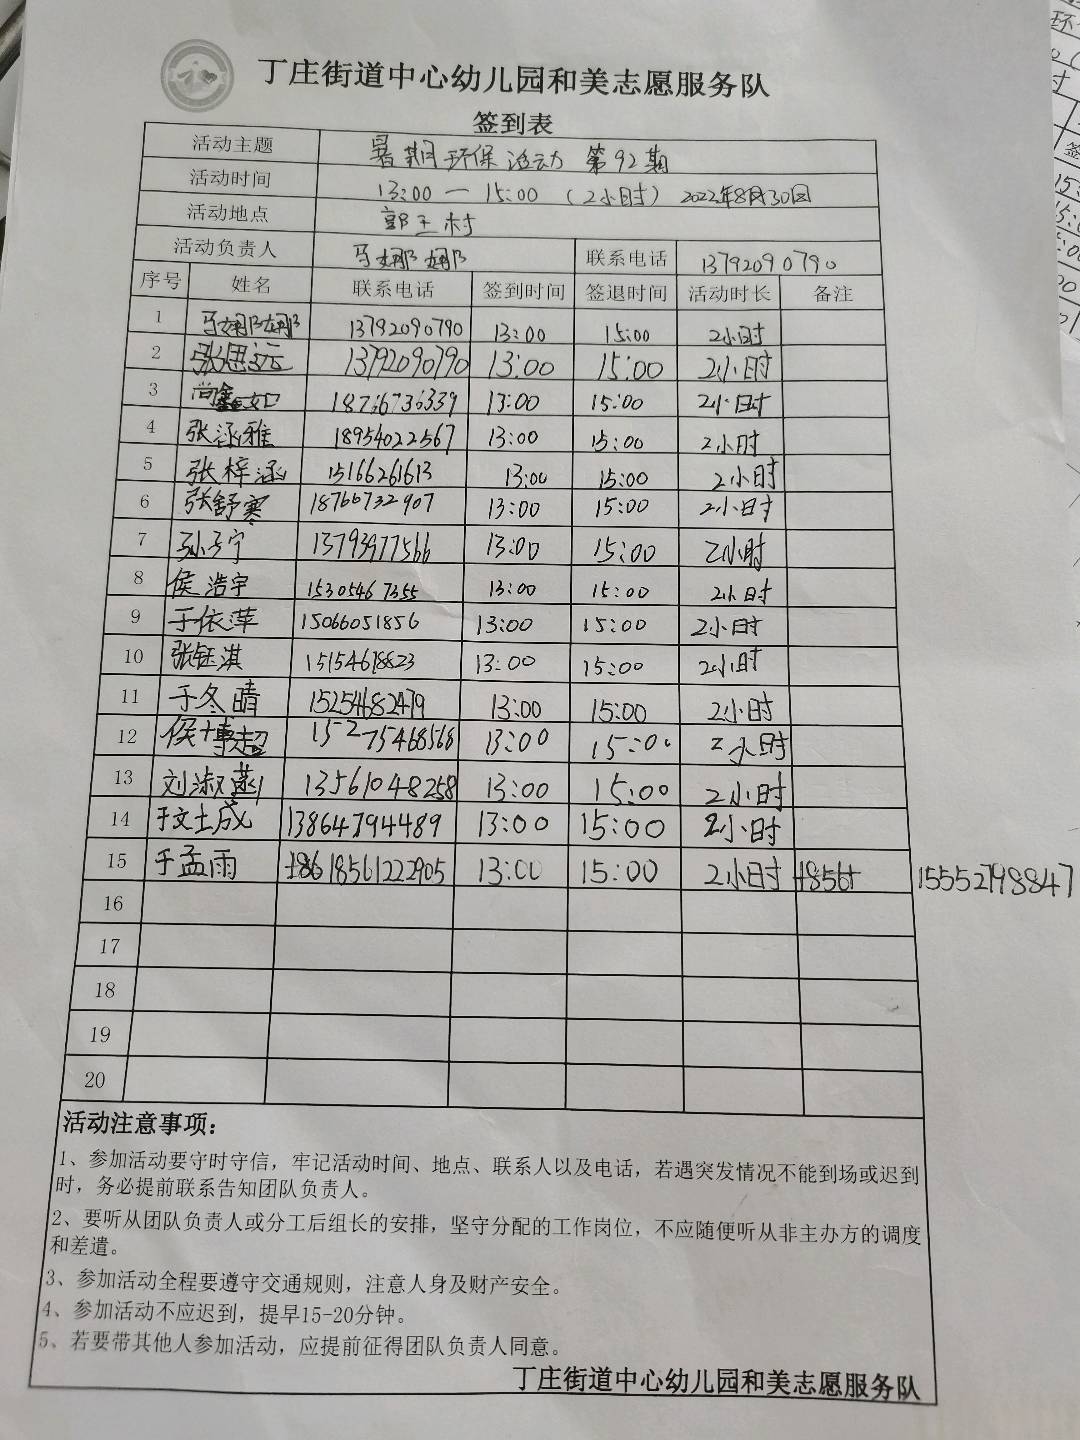 丁庄街道中心幼儿园和美志愿服务队
签到表
活动主题 暑期环保活动 第92期
活动时间 13:00 — 15:00 (2小时) 2022年8月30日
活动地点 郭王村
活动负责人 马娜娜 联系电话 13792090790
序号 姓名 联系电话 签到时间 签退时间 活动时长 备注
1 马娜娜 13792090790 13:00 15:00 2小时
2 张思远 13792090790 13:00 15:00 2小时
3 尚鑫如 18766736339 13:00 15:00 2小时
4 张涵雅 18954022567 13:00 15:00 2小时
5 张梓涵 15166261613 13:00 15:00 2小时
6 张舒寒 18766732907 13:00 15:00 2小时
7 孙子宁 13793977566 13:00 15:00 2小时
8 侯浩宇 15305467355 13:00 15:00 2小时
9 于依萍 15066051856 13:00 15:00 2小时
10 张钰淇 15154618823 13:00 15:00 2小时
11 于冬晴 15254682479 13:00 15:00 2小时
12 侯博超 15275468568 13:00 15:00 2小时
13 刘淑涵 13561048258 13:00 15:00 2小时
14 于文成 13864794489 13:00 15:00 2小时
15 于孟雨 13:00 15:00 2小时 15552798847
16
17
18
19
20
活动注意事项：
1、参加活动要守时守信，牢记活动时间、地点、联系人以及电话，若遇突发情况不能到场或迟到
时，务必提前联系告知团队负责人。
2、要听从团队负责人或分工后组长的安排，坚守分配的工作岗位，不应随便听从非主办方的调度
和差遣。
3、参加活动全程要遵守交通规则，注意人身及财产安全。
4、参加活动不应迟到，提早15-20分钟。
5、若要带其他人参加活动，应提前征得团队负责人同意。
丁庄街道中心幼儿园和美志愿服务队